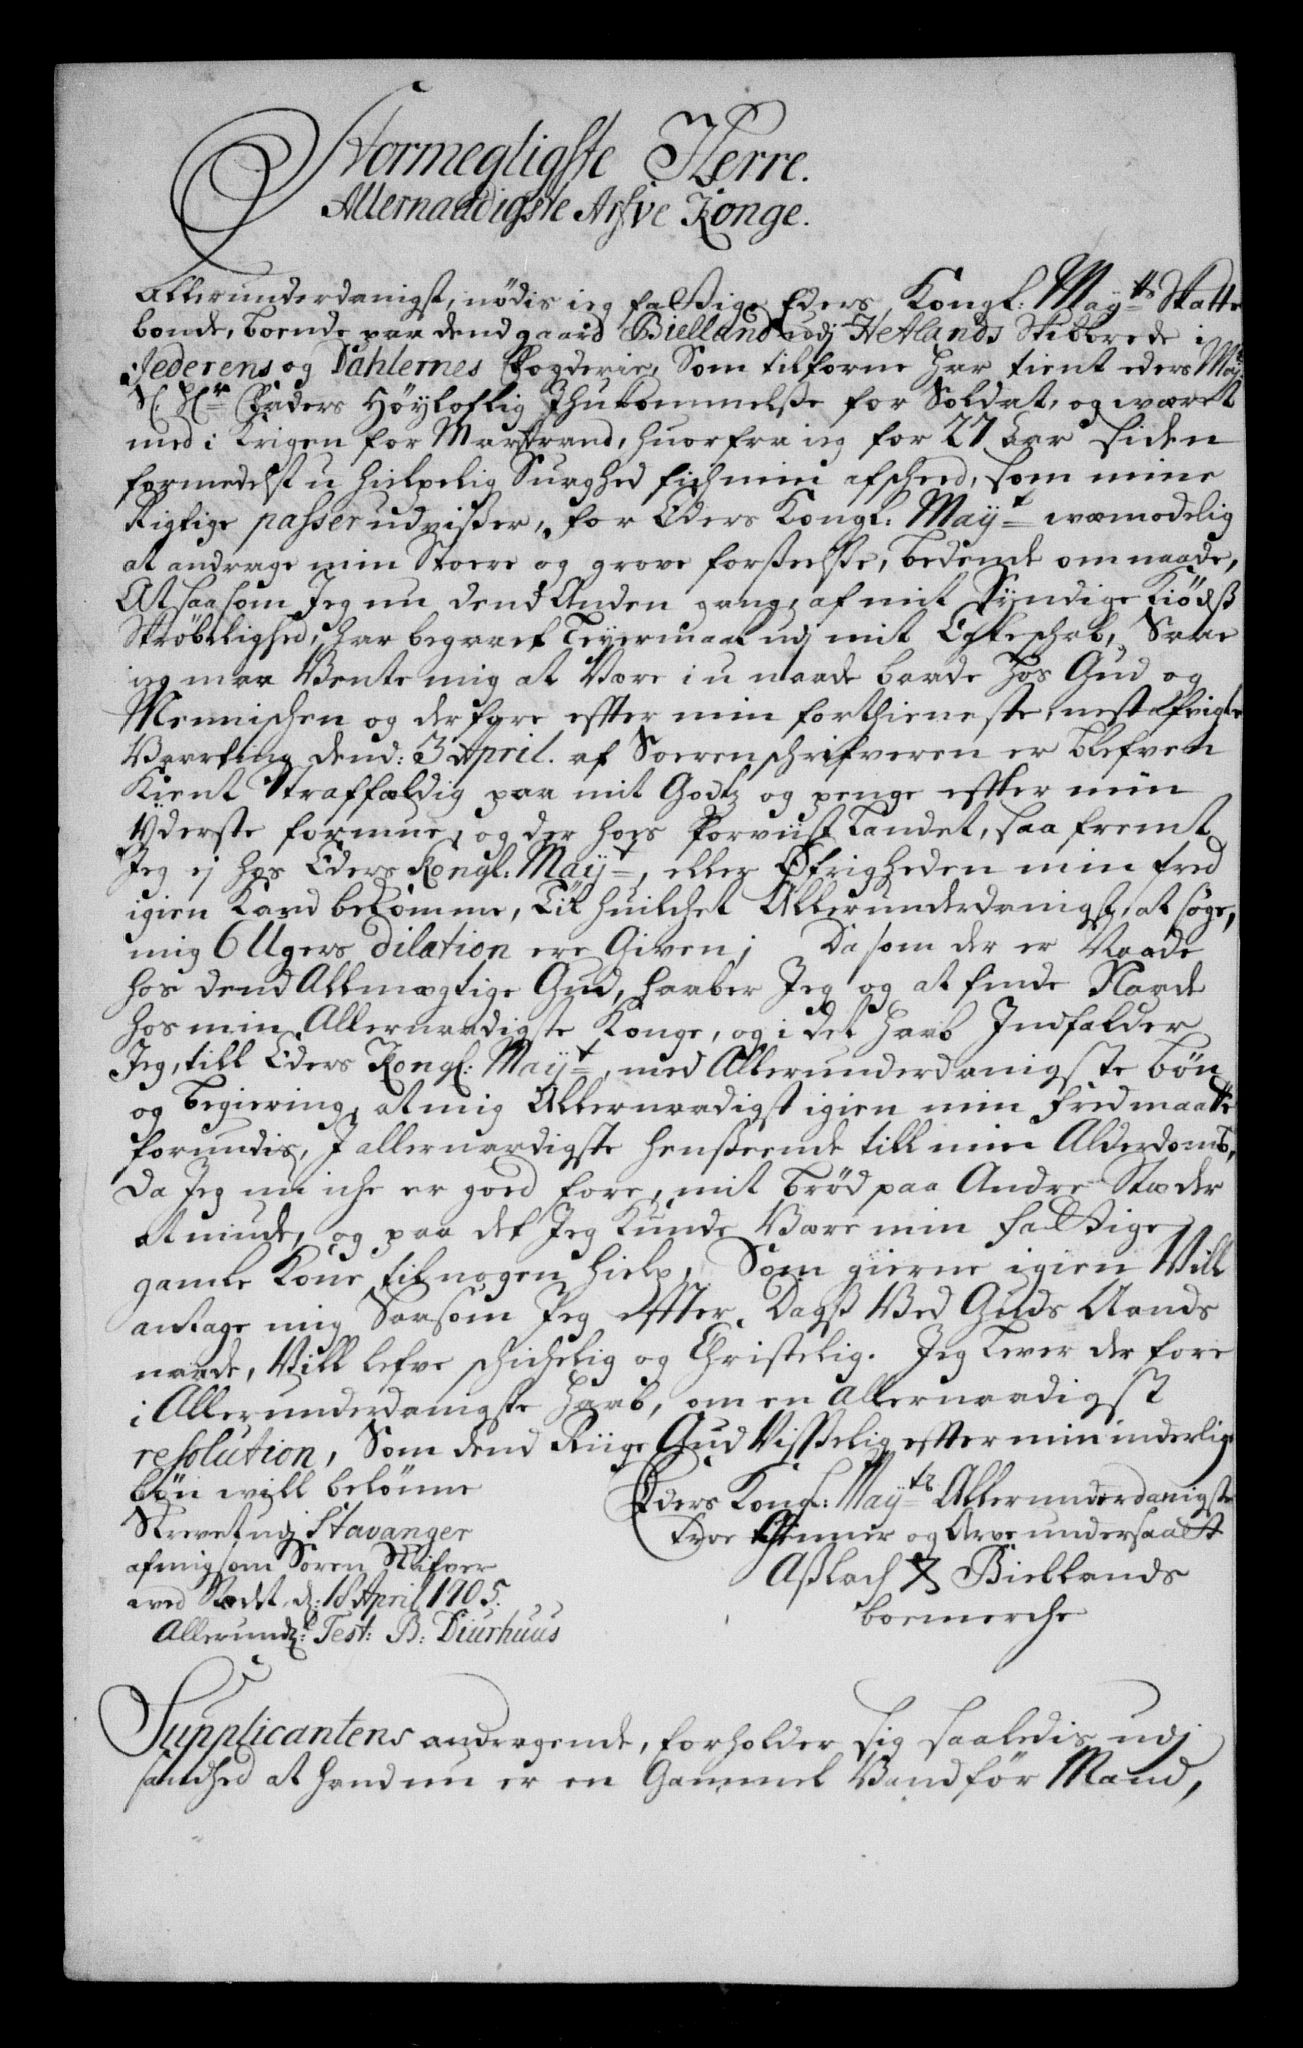 Stormegtigste Herre.
Allernaadigste Arfve Konge.
Allerunderdanigst, nödis ieg fattige Eders Kongl: May.ts Skatte
bonde, boende paa dend gaard Bielland udj Hetlands Skibbrede i
Jederens og Dahlernes Fogderie, Som tilforne har tient eders May.ts
Sl. Hr Faders Höyloflig Ihukommelße for Soldat, og wæret
med i Krigen for Marstrand, huorfra ieg for 27 Aar siden
formedelst u hielpelig Svaghed fich min afscheed, som mine
Rigtige passer udvißer, for Eders Kongl: May.t wemodelig
at andrage min Store og grove forseelße, bedende om naade,
At saasom Jeg nu dend Anden gang, af mit Syndige Kiødß
Skrøbelighed, har begaaet Leyermaal udj mit Egteschab, Saa
ieg maa Vente mig at Være i u naade baade hos Gud og
Mennischen og derfore efter min forthieneste, nest afvigte
Vaarting dend: 3 April. af Sorenschrifveren er blefven
Kient Straffældig paa mit Godtz og penge efter min
Yderste formue, og der hoes forviist Landet, saa fremt
Jeg ej hos Eders Kongl: May.t, eller Øfrigheden min fred
igien Kand bekomme, Til huilchet Allerunderdanigst, at söge,
mig 6 Ugers dilation ere Given; Da som der er Naade
hos dend Allmægtige Gud, haaber Jeg og at finde Naade
hos min Allernaadigste Konge, og i det haab Indfalder
Jeg, till Eders Kongl: May.t, med Allerunderdanigste bön
og begiering, at mig Allernaadigst igien min fred maatte
forundis, I allernaadigste henseende till min Alderdomb,
Da Jeg nu iche er goed fore, mit bröd paa Andre Stæder
at niude, og paa det Jeg Kunde Være min fattige
gamle Kone til nogen hielp, Som gierne igien Vill
antage mig Saasom Jeg efter Dagß Ved Guds Aands
naade, Vill lefve schichelig og Christelig. Jeg lever der fore
i Allerunderdanigste haab, om en Allernaadigst
resolution, Som dend Riige Gud Visselig efter min inderlig
bön will belönne
Eders Kongl: May.ts Allerunderdanigste
Skrevet udj Stavanger
troe thienner og Arve undersaatt
af mig som Soren Skrifver
Aßlach Biellands
wed Stædet, d: 18 April 1705.
boemerche
Allerund.t Test: B: Diurhuus
Supplicantens andragende, forholder sig saaledis udj
sandhed at hand nu er en Gammel Vandför Mand,